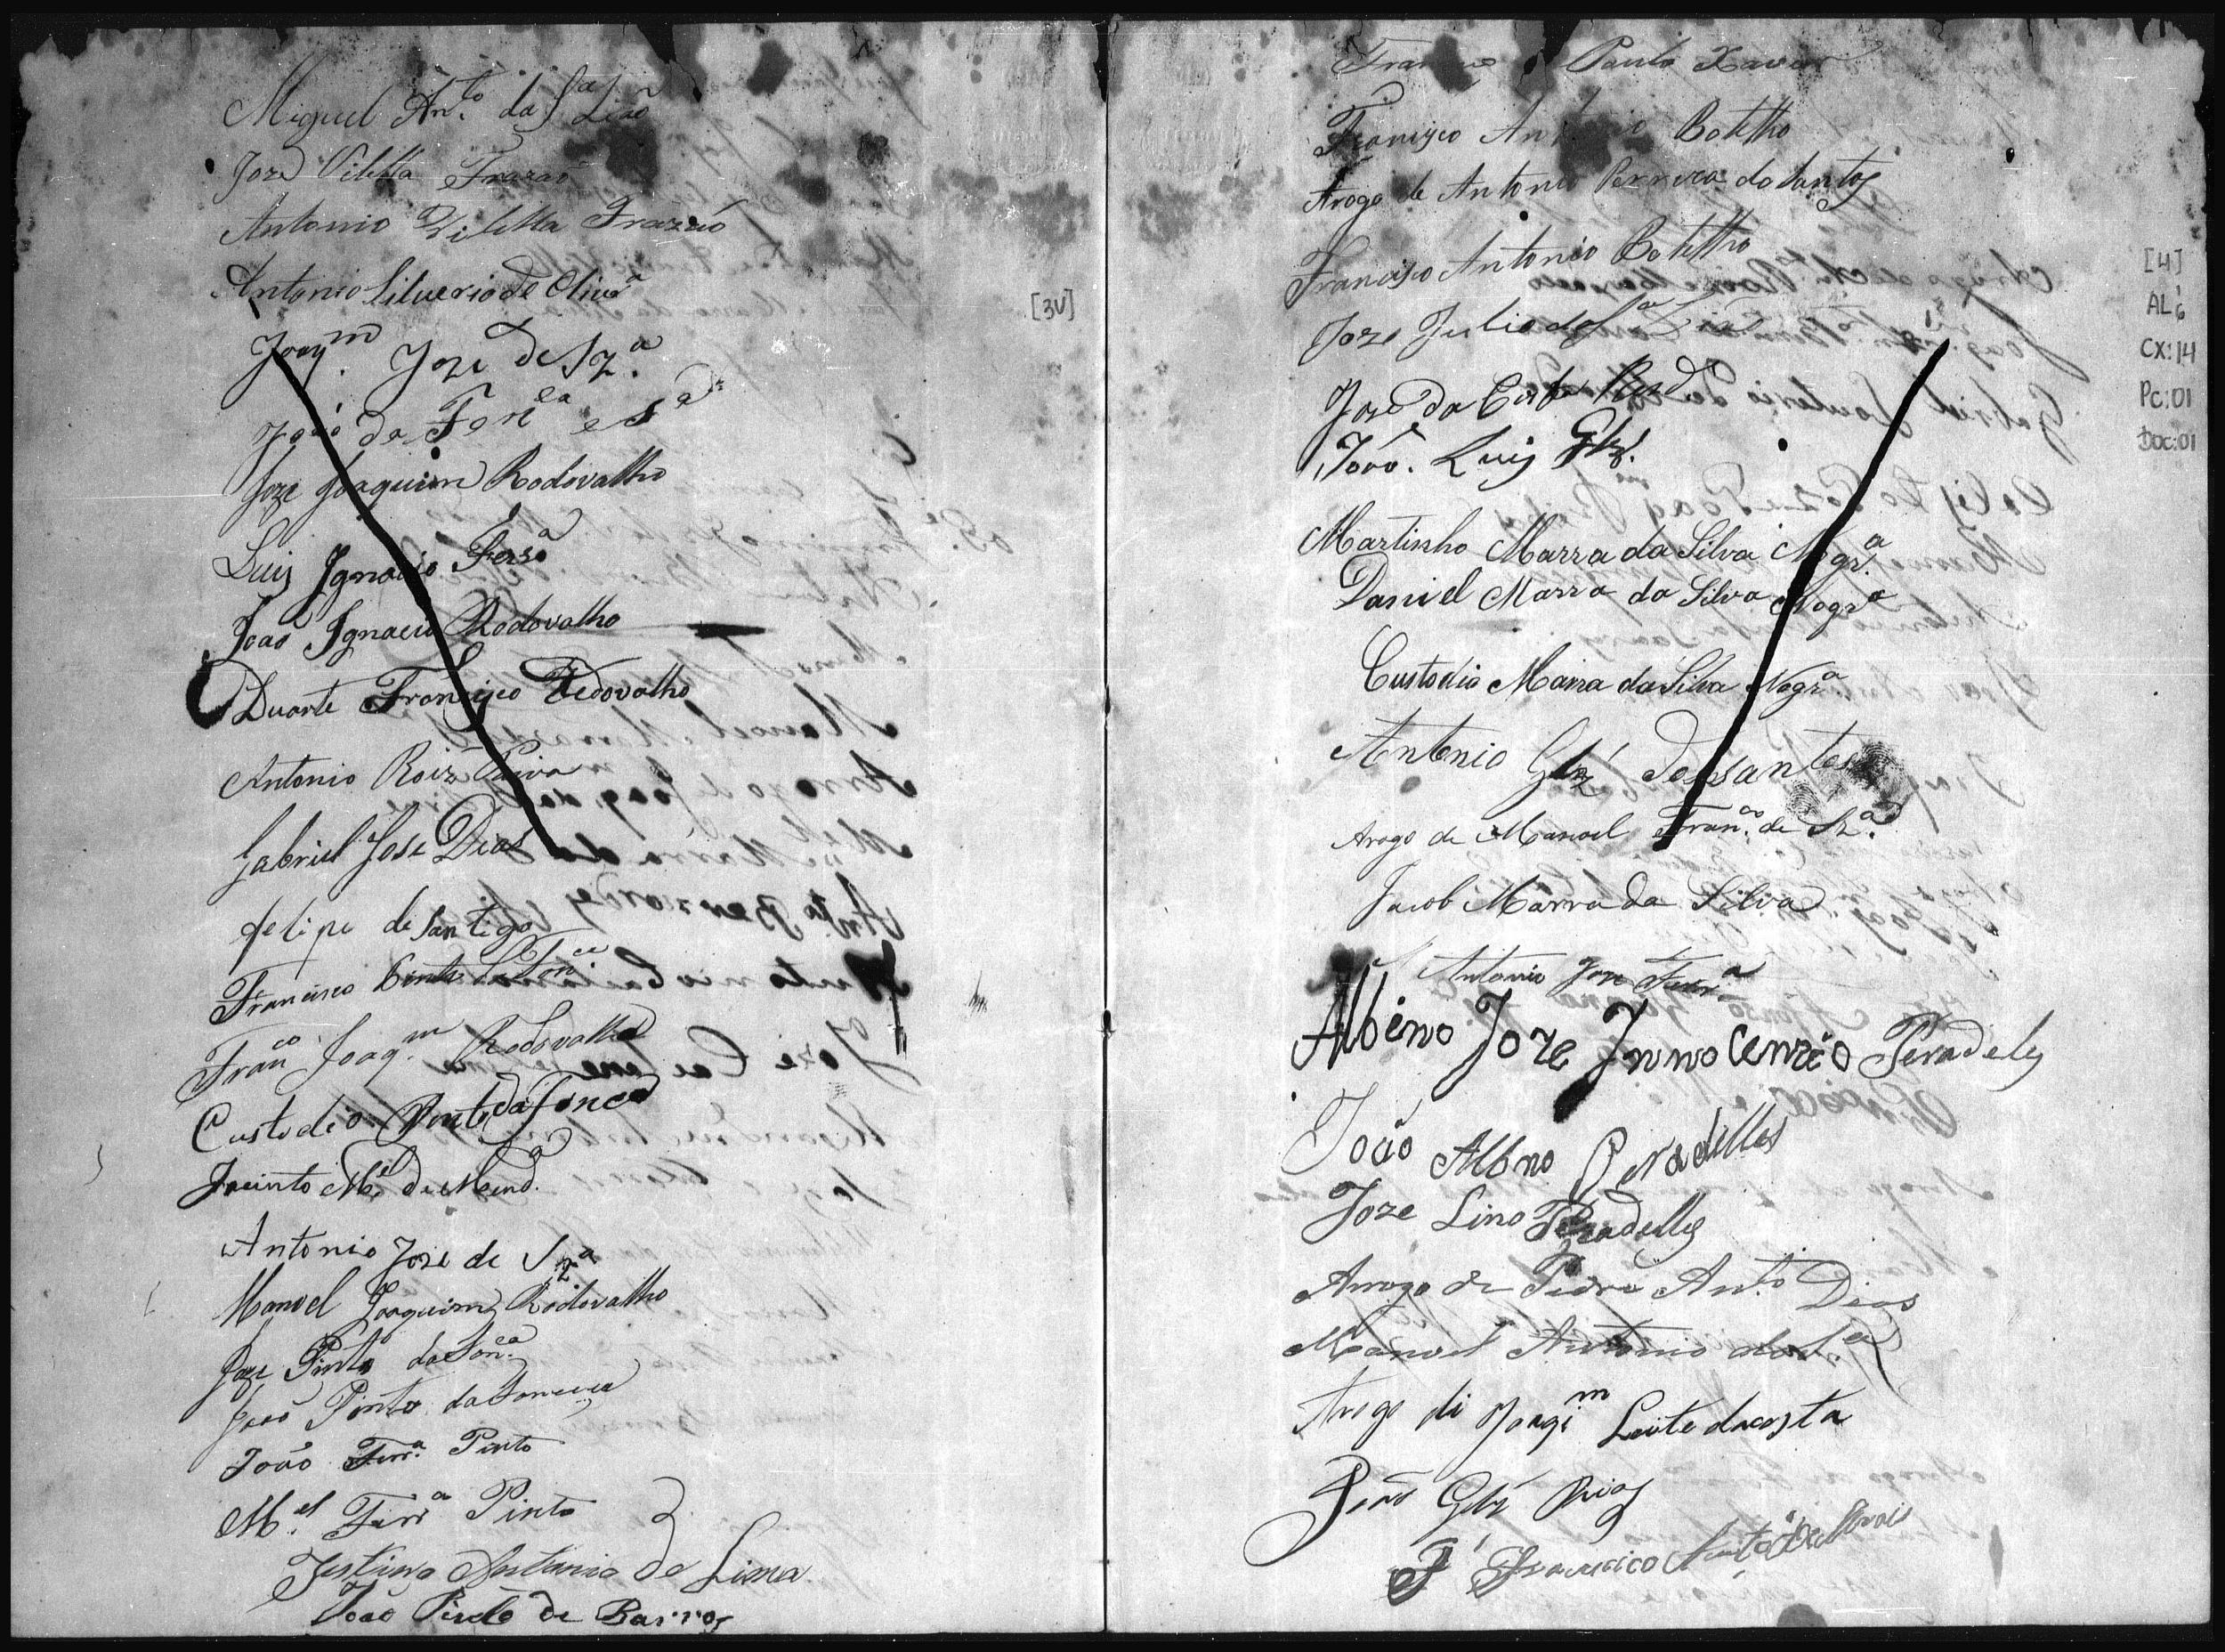 Miguel An.to da S.a Leaõ
Joze Vilella Frazaõ
Antonio Vilella Frazaó
Antonio Silverio de Olivr.a
Joaq.m Joze de Sz.a
João da Fon.ca e S.a
Joze Joaquim Rodovalho
Luis Ignacio Ferr.a
Joaõ Ignacio Rodovalho
Duarte Francisco Redovalho
Antonio Roiz Paiva
Gabriel Jose Dias
felipe de Santigo
Francisco Pinto da Fon.ca
Fran.co Joaq.m Rodovalho
Custodio Pinto da Fonca
Jacinto M.el de Mend.ca
Antonio Joze de Sz.a
Manoel Joaquim Rodovalho
Joze Pinto da Fon.ca
Joaõ Pinto da Fonceca
João Ferr.a Pinto
M.el Ferr.a Pinto
Justino Antonio de Lima
Joaõ Pinto de Barros
[3V]
Francisco Paula Xavier
Francisco Antonio Botelho
Arogo de Antonio Perreira do Santos
Francisco Antonio Botelho
Joze Julio da S.a Leaõ
Joze da Costa
João. Luis Glz.
Martinho Marra da Silva Nogr.a
Daniel Marra da Silva Nogr.a
Custodio Marra da Silva Nogr.a
Antonio Glz dos Santos
Arogo de Manoel Fran.co de Sz.a
Jacob Marra da Silva
Antonio Joze Ferr.a
Albino Joze Innocenzio Peradeles
João Albno Peradelles
Joze Lino Peradelles
Arrogo de Pedro Ant.o Dias
Manoel Antonio da S.a
Arogo di Joaqi.m Leite dacosta
João Glz Rios
Francisco
[4]
AL6
CX:14
Pc:01
Doc:01